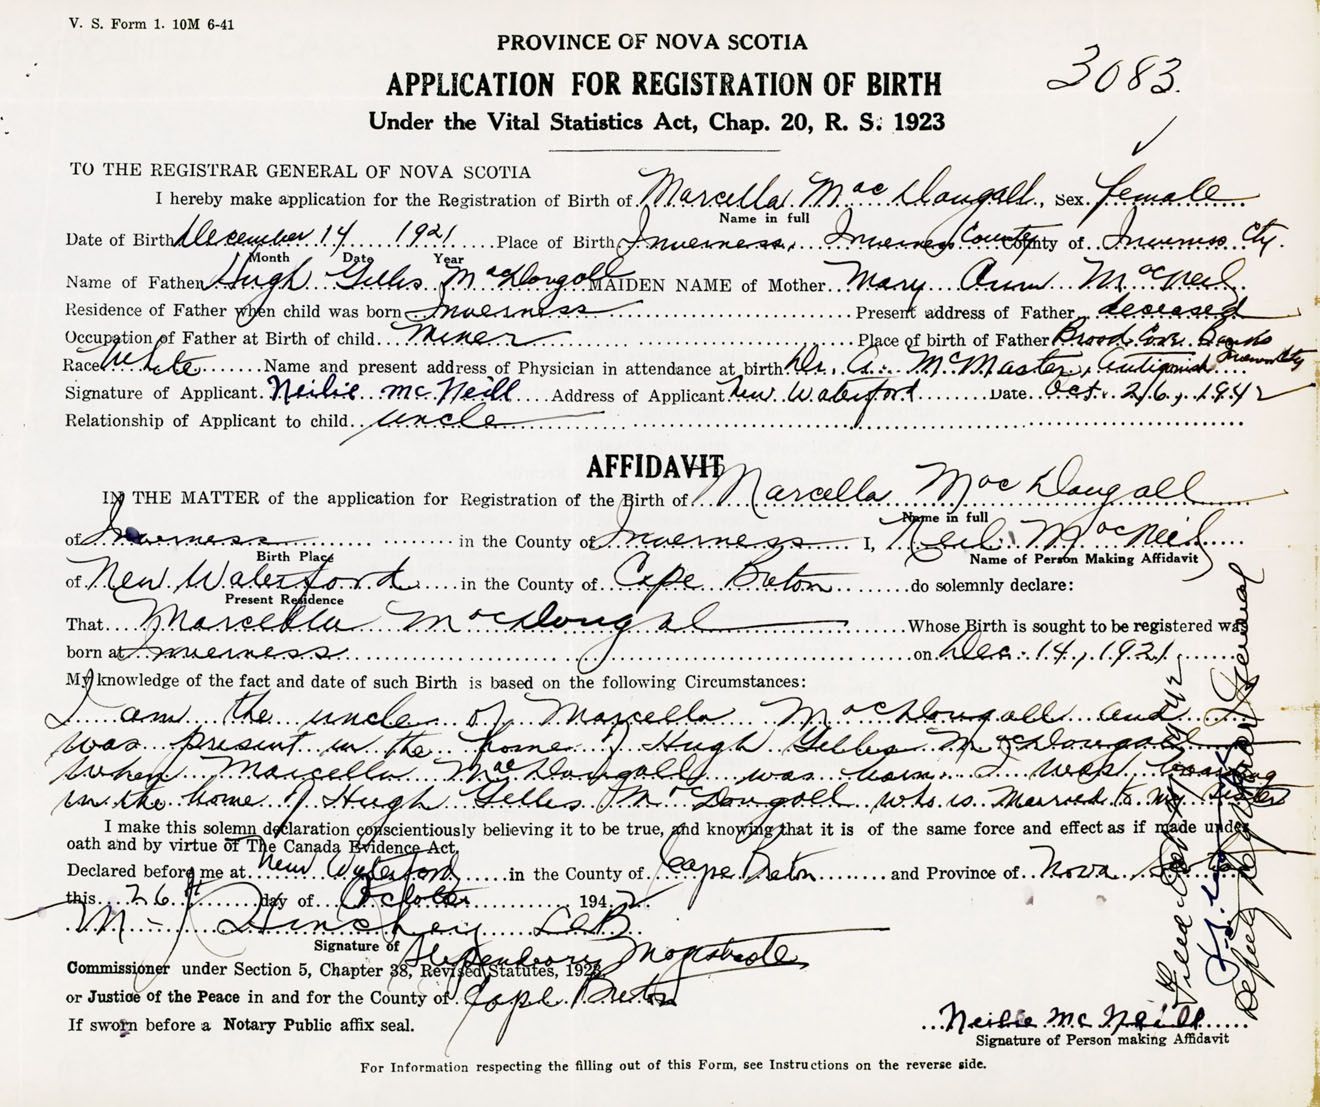 V. S. Form 1. 10M 6-41
PROVINCE OF NOVA SCOTIA
3083.
APPLICATION FOR REGISTRATION OF BIRTH
Under the Vital Statistics Act, Chap. 20, R. S. 1923
TO THE REGISTRAR GENERAL OF NOVA SCOTIA
I hereby make application for the Registration of Birth of Marcella MacDougall, Sex female
Name in full
Date of Birth December 14 1921 Place of Birth Inverness, Inverness County County of Inverness Cty.
Month Date Year
Name of Father Hugh Gillis MacDougall MAIDEN NAME of Mother Mary Ann McNeil
Residence of Father when child was born Inverness Present address of Father deceased
Occupation of Father at Birth of child Miner Place of birth of Father Broad Cove Banks
Race White Name and present address of Physician in attendance at birth Dr. A. McMaster, Antigonish
Signature of Applicant Neilie McNeill Address of Applicant New Waterford Date Oct. 26, 1942
Relationship of Applicant to child uncle
AFFIDAVIT
IN THE MATTER of the application for Registration of the Birth of Marcella MacDougall
Name in full
of Inverness in the County of Inverness I, Neil MacNeil
Birth Place Name of Person Making Affidavit
of New Waterford in the County of Cape Breton do solemnly declare:
Present Residence
That Marcella MacDougal Whose Birth is sought to be registered was
born at Inverness on Dec. 14, 1921
My knowledge of the fact and date of such Birth is based on the following Circumstances:
I am the uncle of Marcella MacDougall and
was present in the home of Hugh Gillis MacDougall
when Marcella MacDougall was born. I was boarding
in the home of Hugh Gillis McDougall who is married to my sister
I make this solemn declaration conscientiously believing it to be true, and knowing that it is of the same force and effect as if made under
oath and by virtue of The Canada Evidence Act.
Declared before me at New Waterford in the County of Cape Breton and Province of Nova Scotia
this 26th day of October 1942
M. J. Hinchey LLB
Signature of Stipendiary Magistrate
Commissioner under Section 5, Chapter 38, Revised Statutes, 1923
or Justice of the Peace in and for the County of Cape Breton
If sworn before a Notary Public affix seal.
Neilie McNeill
Signature of Person making Affidavit
For Information respecting the filling out of this Form, see Instructions on the reverse side.
Filed Oct 1942
Deputy Registrar General